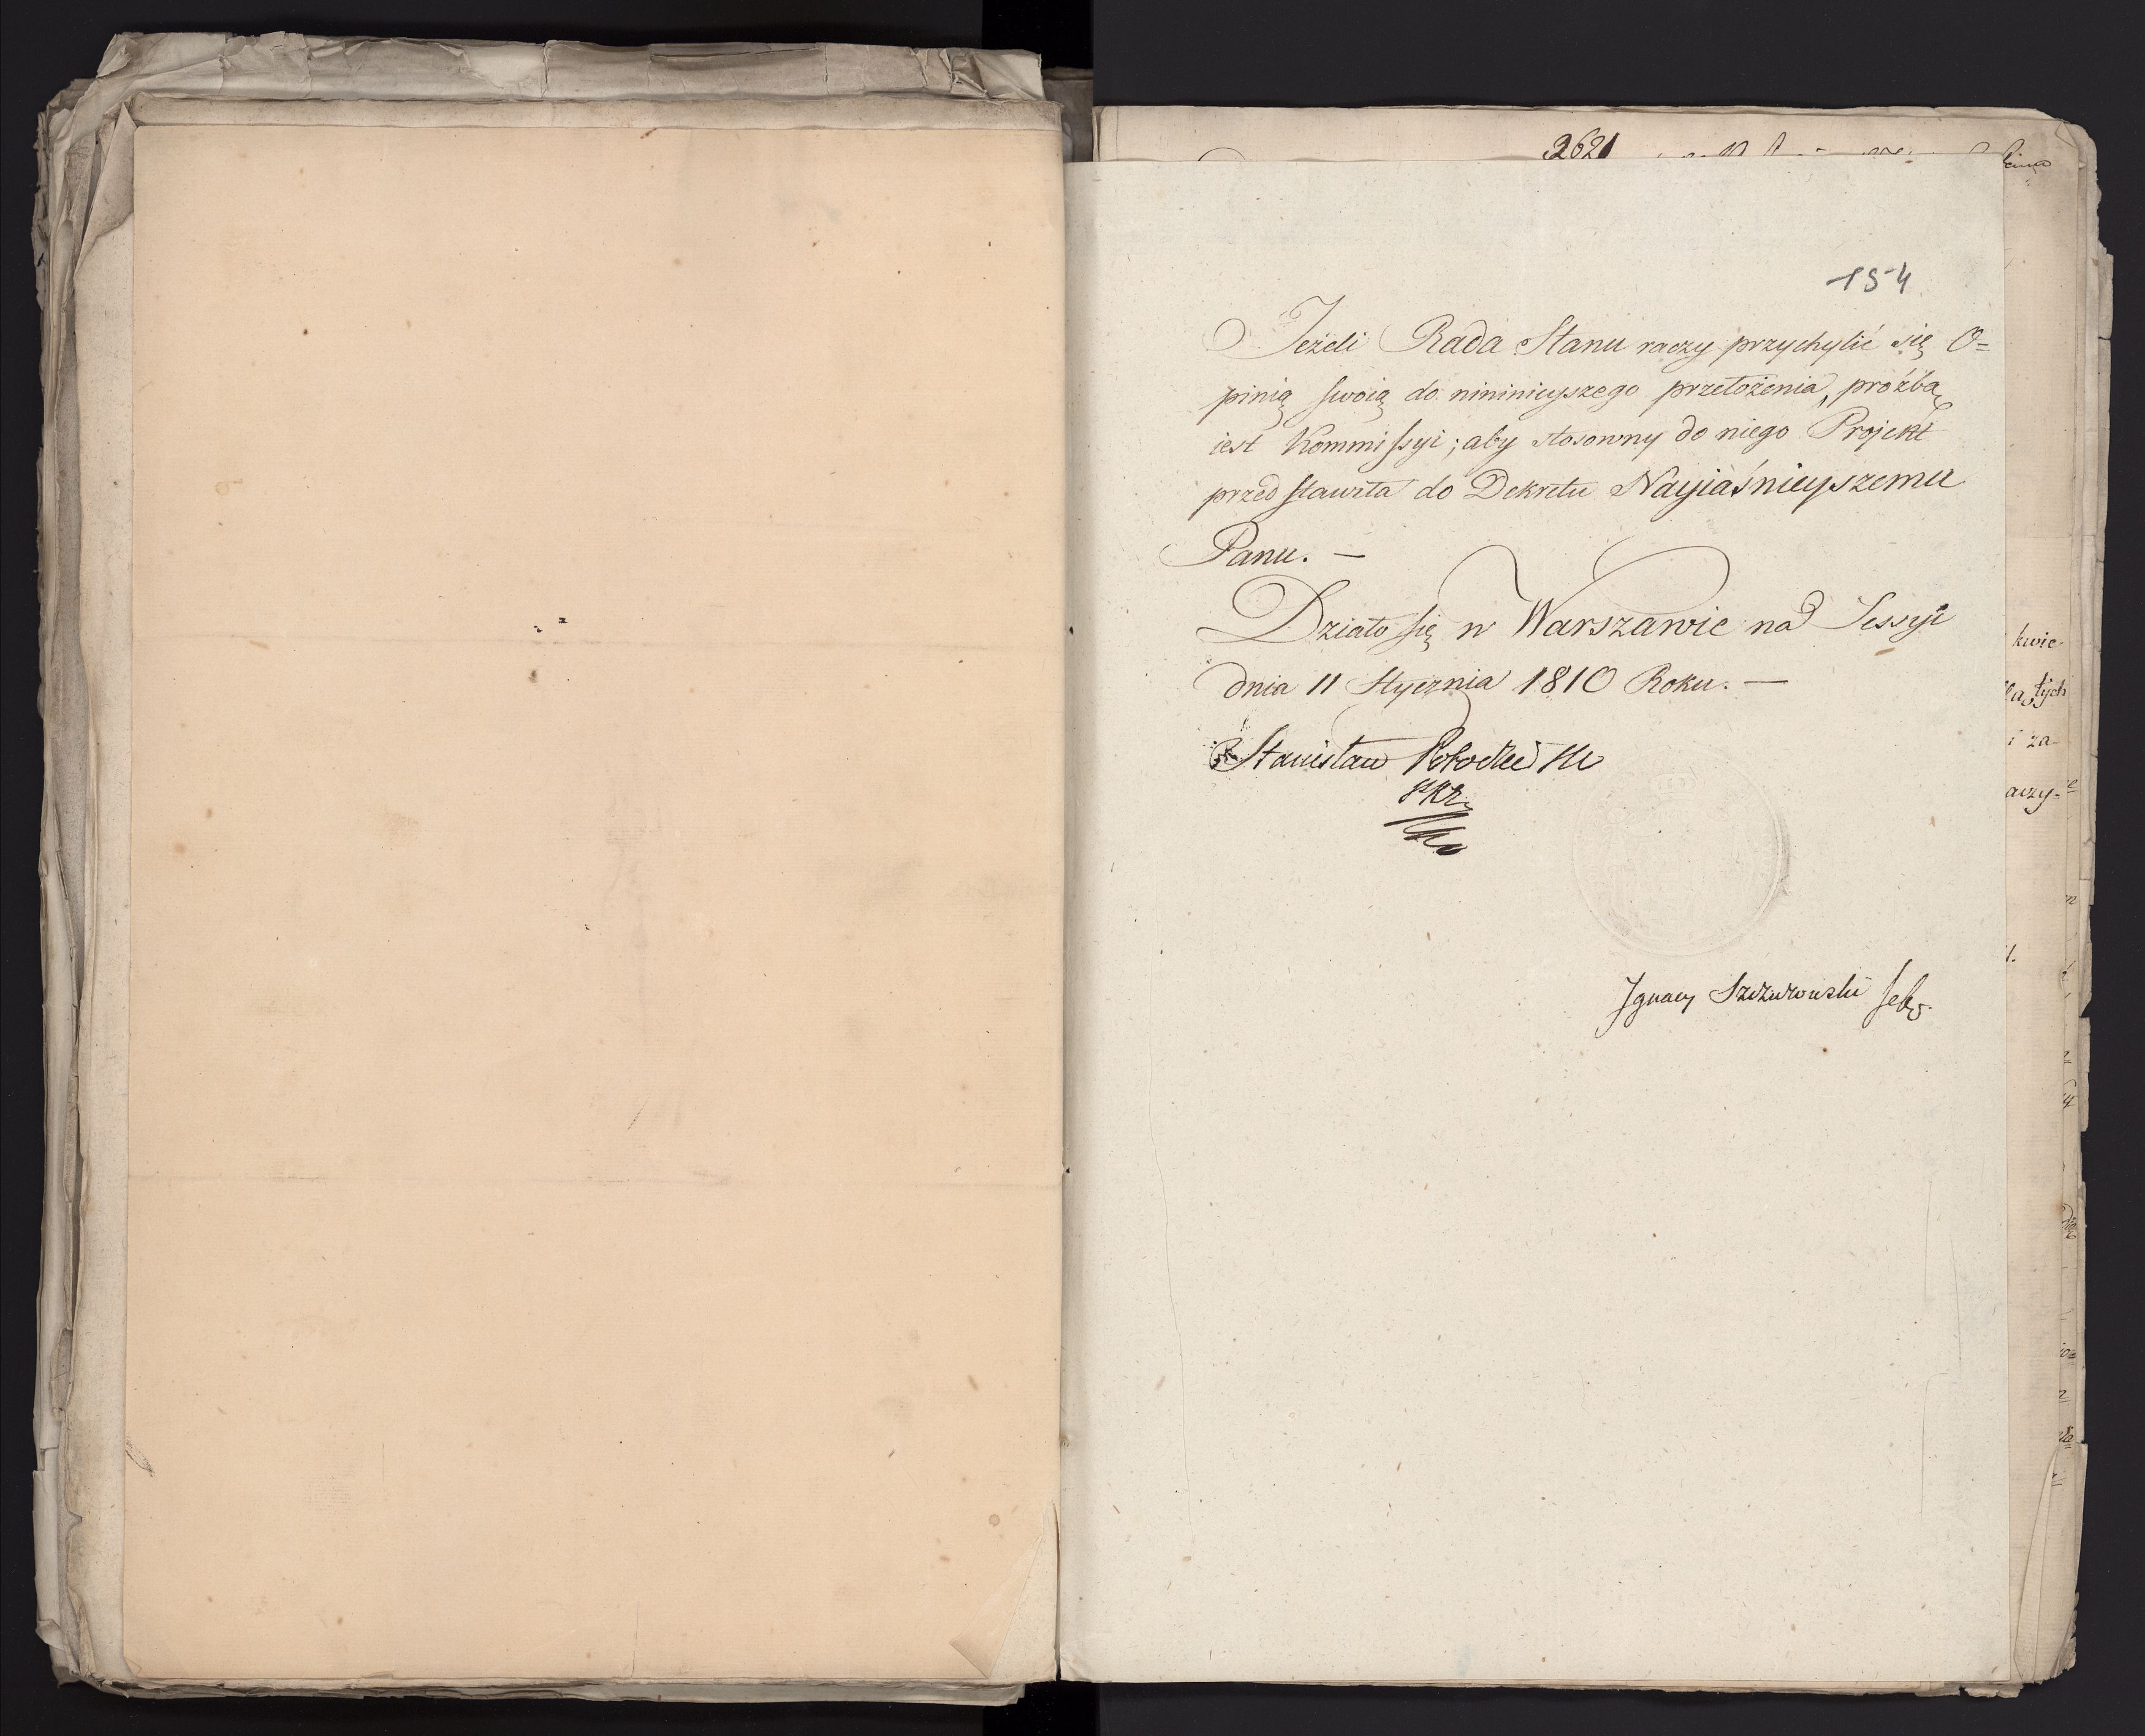 2621
154
Jeżeli Rada Stanu raczy przychylić się O=
pinią swoią do nininieyszego przełożenia, próźbą
iest Kommissyi; aby stosowny do niego Projekt
przedstawiła do Dekretu Nayiaśnieyszemu
Panu. —
Działo się w Warszawie na Sessyi
dnia 11 Stycznia 1810 Roku. —
Stanisław Potocki
Ignacy Sekr
kwie-
tych
i za-
aczy=